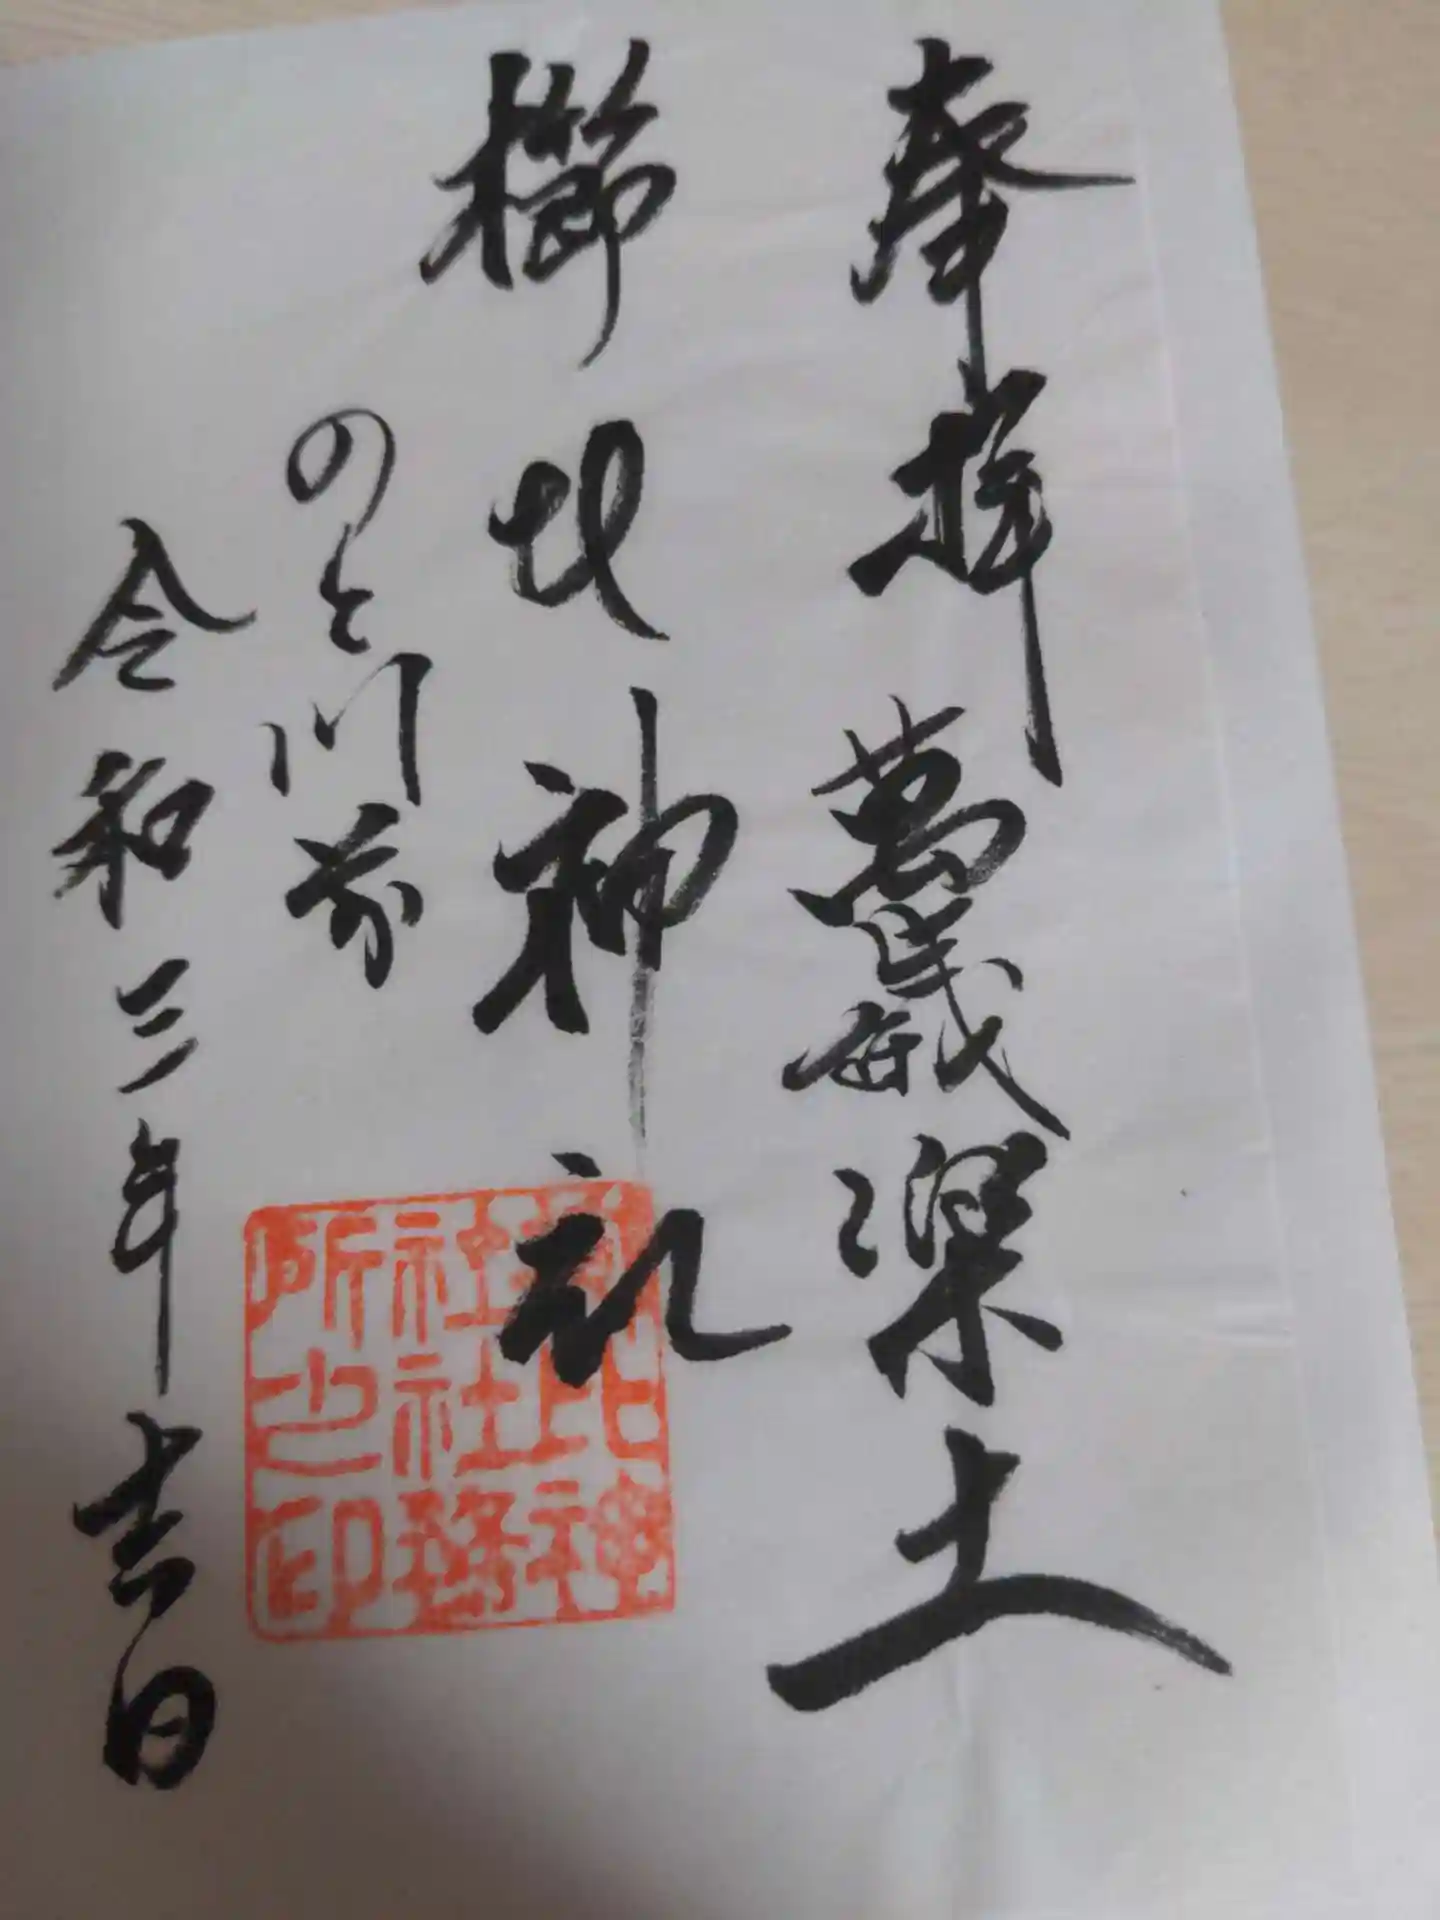 奉拝 萬歳楽土
櫛比神社
のと門前
令和三年吉日
櫛比神
社社務
所之印